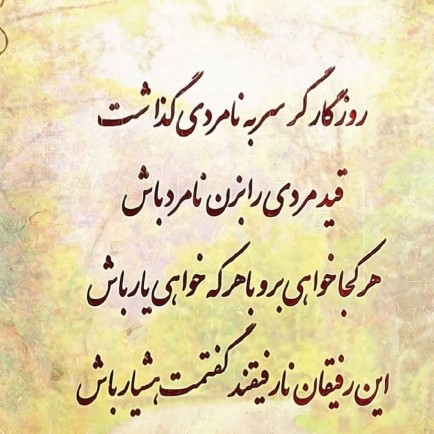 روزگار گر سر به نامردی گذاشت
قید مردی را بزن نامرد باش
هر کجا خواهی برو با هر که خواهی یار باش
این رفیقان نارفیقند گفتمت هشیار باش